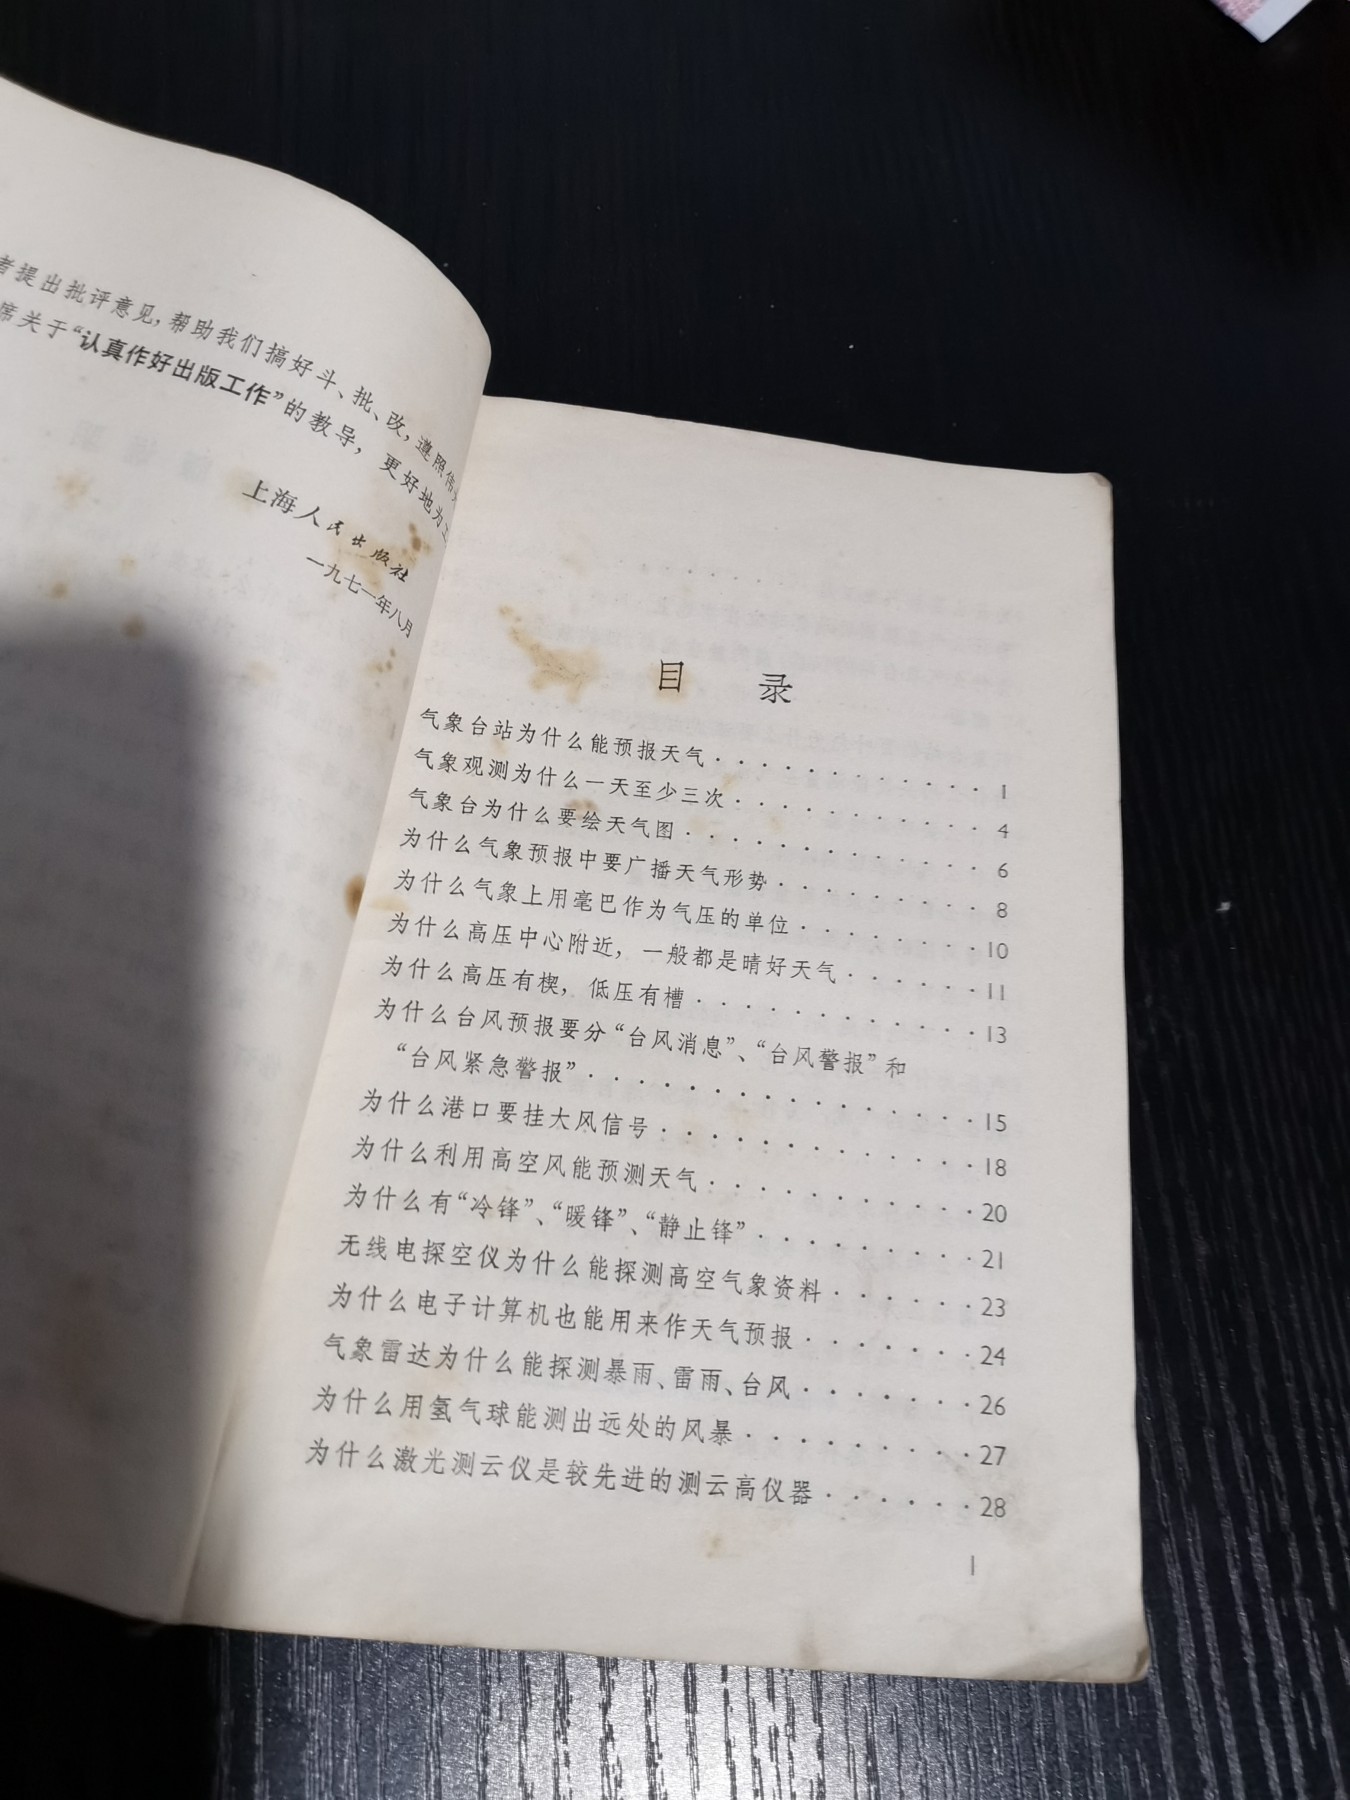 者提出批评意见，帮助我们搞好斗、批、改，遵照伟
席关于“认真作好出版工作”的教导，更好地为
上海人民出版社
一九七一年八月
目 录
气象台站为什么能预报天气 · · · · · · · · · · · 1
气象观测为什么一天至少三次 · · · · · · · · · · · 4
气象台为什么要绘天气图 · · · · · · · · · · · · 6
为什么气象预报中要广播天气形势 · · · · · · · · 8
为什么气象上用毫巴作为气压的单位 · · · · · · · 10
为什么高压中心附近，一般都是晴好天气 · · · · · · 11
为什么高压有楔，低压有槽 · · · · · · · · · · · 13
为什么台风预报要分“台风消息”、“台风警报”和
“台风紧急警报” · · · · · · · · · · · · · · · 15
为什么港口要挂大风信号 · · · · · · · · · · · · 18
为什么利用高空风能预测天气 · · · · · · · · · · 20
为什么有“冷锋”、“暖锋”、“静止锋” · · · · · · · · 21
无线电探空仪为什么能探测高空气象资料 · · · · · · 23
为什么电子计算机也能用来作天气预报 · · · · · · · 24
气象雷达为什么能探测暴雨、雷雨、台风 · · · · · · · 26
为什么用氢气球能测出远处的风暴 · · · · · · · · · 27
为什么激光测云仪是较先进的测云高仪器 · · · · · · 28
1